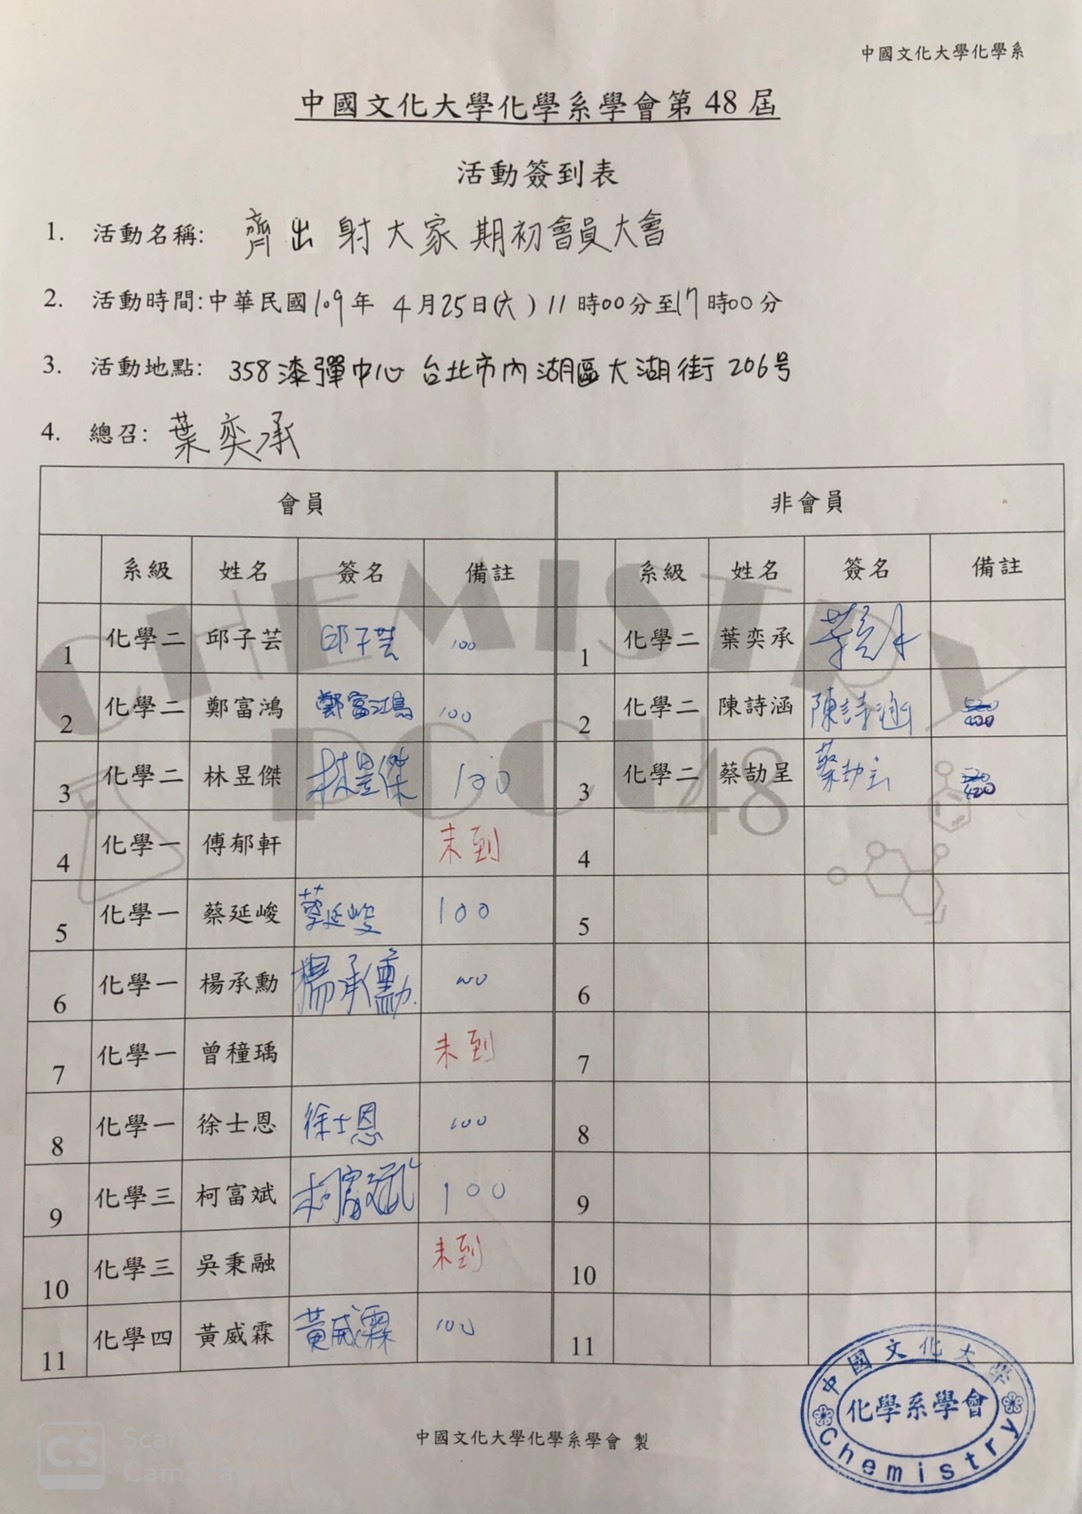 中國文化大學化學系
中國文化大學化學系學會第 48 屆
活動簽到表
1. 活動名稱: 齊出射大家 期初會員大會
2. 活動時間:中華民國109年 4月25日(六) 11時00分至17時00分
3. 活動地點: 358漆彈中心 台北市內湖區大湖街206号
4. 總召: 葉奕承
會員 非會員
系級 姓名 簽名 備註 系級 姓名 簽名 備註
1 化學二 邱子芸 邱子芸 100 1 化學二 葉奕承
2 化學二 鄭富鴻 鄭富鴻 100 2 化學二 陳詩涵 陳詩涵
3 化學二 林昱傑 林昱傑 100 3 化學二 蔡劼呈
4 化學一 傅郁軒 未到 4
5 化學一 蔡延峻 蔡延峻 100 5
6 化學一 楊承勳 楊承勳 100 6
7 化學一 曾穜瑀 未到 7
8 化學一 徐士恩 徐士恩 100 8
9 化學三 柯富斌 柯富斌 100 9
10 化學三 吳秉融 未到 10
11 化學四 黃威霖 黃威霖 100 11
CHEMISTRY
PCCU48
中國文化大學
化學系學會
Chemistry
中國文化大學化學系學會 製
CS